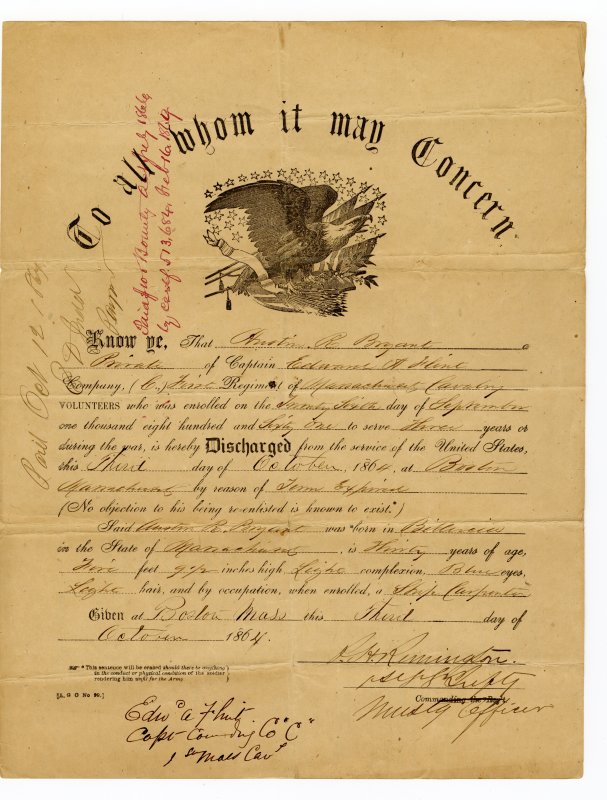 To all whom it may Concern.
Paid Oct 12 / 64
Know ye, That Austin R. Bryant a
Private of Captain Edward A Flint
Company, (C,) First Regiment of Massachusetts Cavalry
VOLUNTEERS who was enrolled on the Twenty Sixth day of September
one thousand eight hundred and Sixty One to serve Three years or
during the war, is hereby Discharged from the service of the United States,
this Third day of October, 1864, at Boston
Massachusetts by reason of Term Expired
(No objection to his being re-enlisted is known to exist.*)
Said Austin R. Bryant was born in Billerica
in the State of Massachusetts, is Thirty years of age,
Five feet inches high, Light complexion, Blue eyes,
Light hair, and by occupation, when enrolled, a Ship Carpenter
Given at Boston Mass this Third day of
October 1864.
* This sentence will be erased should there be anything
in the conduct or physical condition of the soldier
rendering him unfit for the Army.
[A. G. O. No. 99.]
Remington
Commanding the Reg't
Musty Officer
Edwd A Flint
Capt Comdng Co "C"
1st Mass Cav